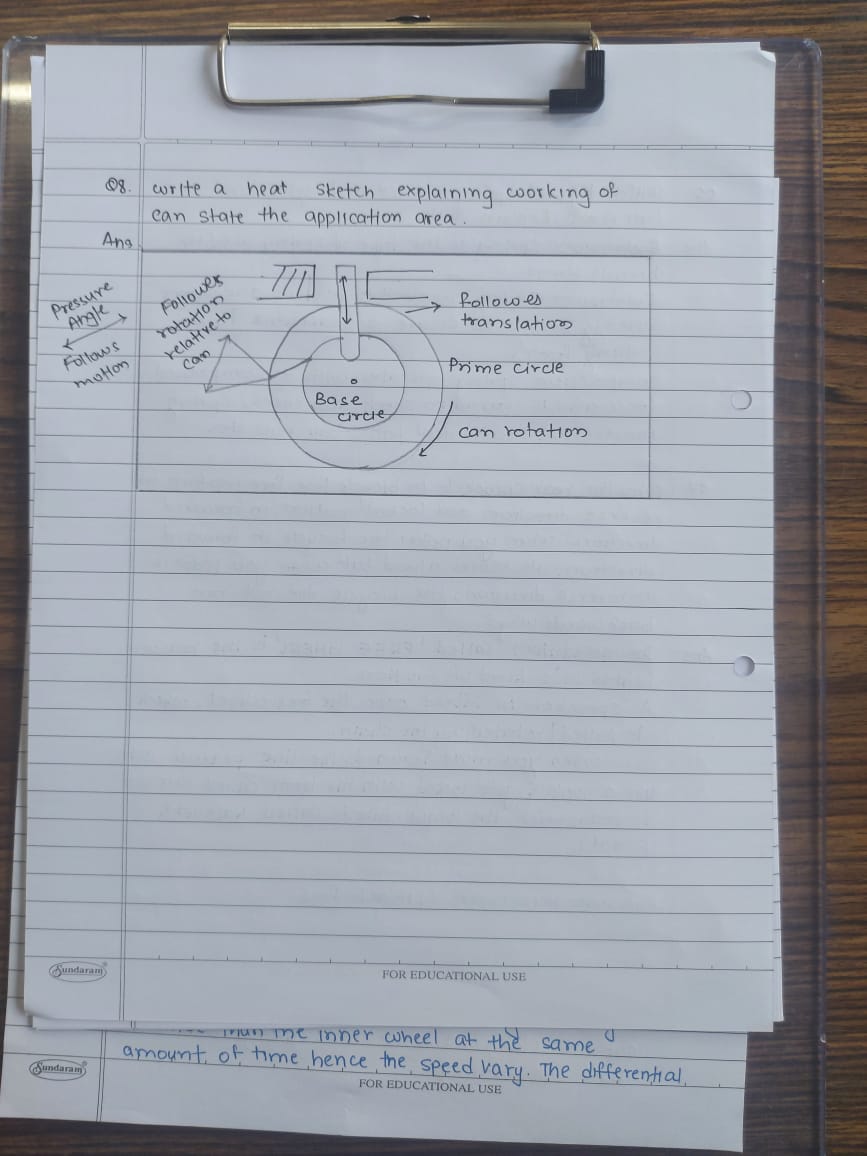 Q8. write a heat sketch explaining working of
can state the application area.
Ans
Pressure
Angle
Follows
motion
Follower
rotation
relative to
can
followes
translation
Prime circle
Base
circle
can rotation
Sundaram
FOR EDUCATIONAL USE
than the inner wheel at the same
amount of time hence the speed vary. The differential
Sundaram
FOR EDUCATIONAL USE